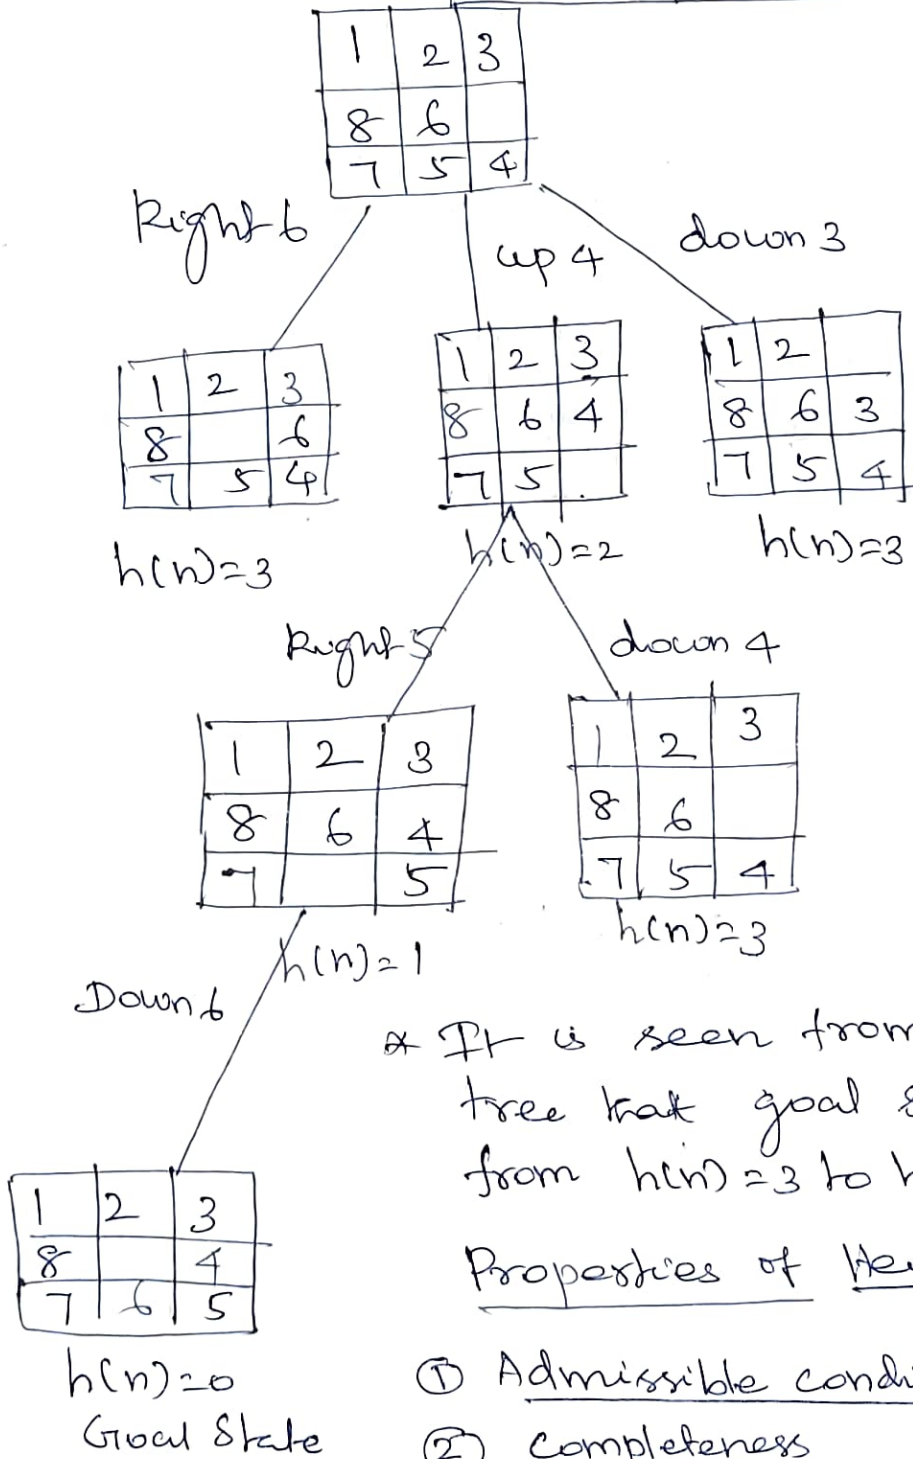 1 2 3
8 6
7 5 4
Right 6
up 4
down 3
1 2 3
8 6
7 5 4
h(n)=3
1 2 3
8 6 4
7 5
h(n)=2
1 2
8 6 3
7 5 4
h(n)=3
Right 5
down 4
1 2 3
8 6 4
7 5
h(n)=1
1 2 3
8 6
7 5 4
h(n)=3
Down 6
1 2 3
8 4
7 6 5
h(n)=0
Goal State
* It is seen from
tree that goal
from h(n)=3 to
Properties of
① Admissible
② Completeness